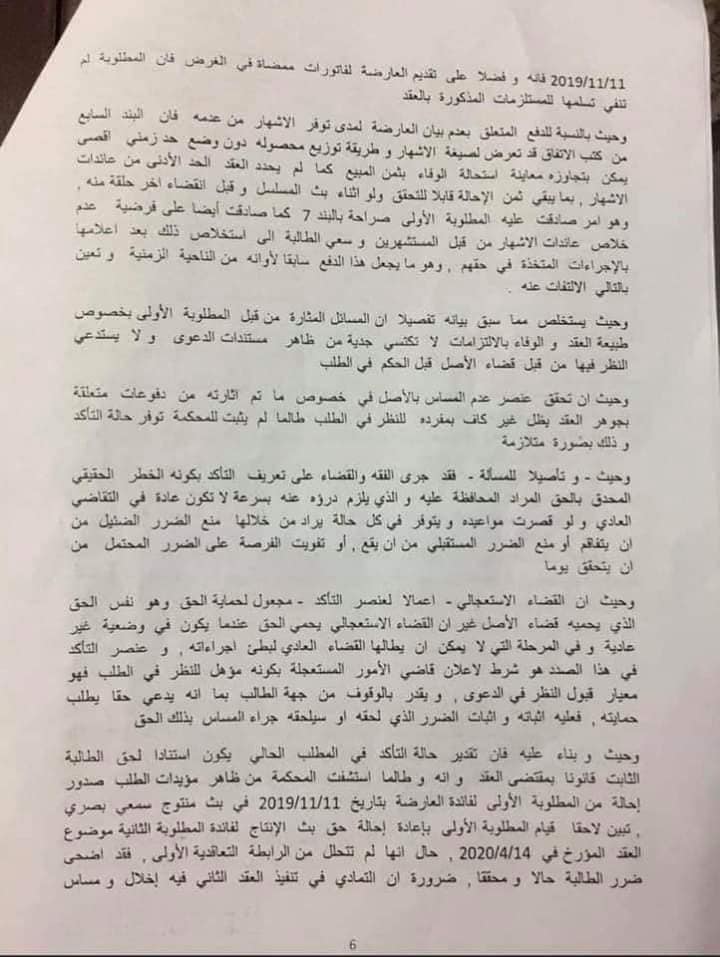 2019/11/11 فانه و فضلا على تقديم العارضة لفاتورات ممضاة في الغرض فان المطلوبة لم
تنفي تسلمها للمستلزمات المذكورة بالعقد
وحيث بالنسبة للدفع المتعلق بعدم بيان العارضة لمدى توفر الاشهار من عدمه فان البند السابع
من كتب الاتفاق قد تعرض لصيغة الاشهار و طريقة توزيع محصوله دون وضع حد زمني اقصى
يمكن بتجاوزه معاينة استحالة الوفاء بثمن المبيع كما لم يحدد العقد الحد الأدنى من عائدات
الاشهار , بما يبقي ثمن الإحالة قابلا للتحقق ولو اثناء بث المسلسل و قبل انقضاء اخر حلقة منه ,
وهو امر صادقت عليه المطلوبة الأولى صراحة بالبند 7 كما صادقت أيضا على فرضية عدم
خلاص عائدات الاشهار من قبل المستشهرين و سعي الطالبة الى استخلاص ذلك بعد اعلامها
بالإجراءات المتخذة في حقهم , وهو ما يجعل هذا الدفع سابقا لأوانه من الناحية الزمنية و تعين
بالتالي الالتفات عنه .
وحيث يستخلص مما سبق بيانه تفصيلا ان المسائل المثارة من قبل المطلوبة الأولى بخصوص
طبيعة العقد و الوفاء بالالتزامات لا تكتسي جدية من ظاهر مستندات الدعوى و لا يستدعي
النظر فيها من قبل قضاء الأصل قبل الحكم في الطلب
وحيث ان تحقق عنصر عدم المساس بالأصل في خصوص ما تم اثارته من دفوعات متعلقة
بجوهر العقد يظل غير كاف بمفرده للنظر في الطلب طالما لم يثبت للمحكمة توفر حالة التأكد
و ذلك بصورة متلازمة
وحيث - و تأصيلا للمسألة - فقد جرى الفقه والقضاء على تعريف التأكد بكونه الخطر الحقيقي
المحدق بالحق المراد المحافظة عليه و الذي يلزم درؤه عنه بسرعة لا تكون عادة في التقاضي
العادي و لو قصرت مواعيده و يتوفر في كل حالة يراد من خلالها منع الضرر الضئيل من
ان يتفاقم أو منع الضرر المستقبلي من ان يقع , أو تفويت الفرصة على الضرر المحتمل من
ان يتحقق يوما
وحيث ان القضاء الاستعجالي - اعمالا لعنصر التأكد - مجعول لحماية الحق وهو نفس الحق
الذي يحميه قضاء الأصل غير ان القضاء الاستعجالي يحمي الحق عندما يكون في وضعية غير
عادية و في المرحلة التي لا يمكن ان يطالها القضاء العادي لبطئ اجراءاته , و عنصر التأكد
في هذا الصدد هو شرط لاعلان قاضي الأمور المستعجلة بكونه مؤهل للنظر في الطلب فهو
معيار قبول النظر في الدعوى , و يقدر بالوقوف من جهة الطالب بما انه يدعي حقا يطلب
حمايته , فعليه اثباته و اثبات الضرر الذي لحقه او سيلحقه جراء المساس بذلك الحق
وحيث و بناء عليه فان تقدير حالة التأكد في المطلب الحالي يكون استنادا لحق الطالبة
الثابت قانونا بمقتضى العقد و انه و طالما استشفت المحكمة من ظاهر مؤيدات الطلب صدور
إحالة من المطلوبة الأولى لفائدة العارضة بتاريخ 2019/11/11 في بث منتوج سمعي بصري
, تبين لاحقا قيام المطلوبة الأولى بإعادة إحالة حق بث الإنتاج لفائدة المطلوبة الثانية موضوع
العقد المؤرخ في 2020/4/14 , حال انها لم تتحلل من الرابطة التعاقدية الأولى , فقد اضحى
ضرر الطالبة حالا و محققا , ضرورة ان التمادي في تنفيذ العقد الثاني فيه إخلال و مساس
6